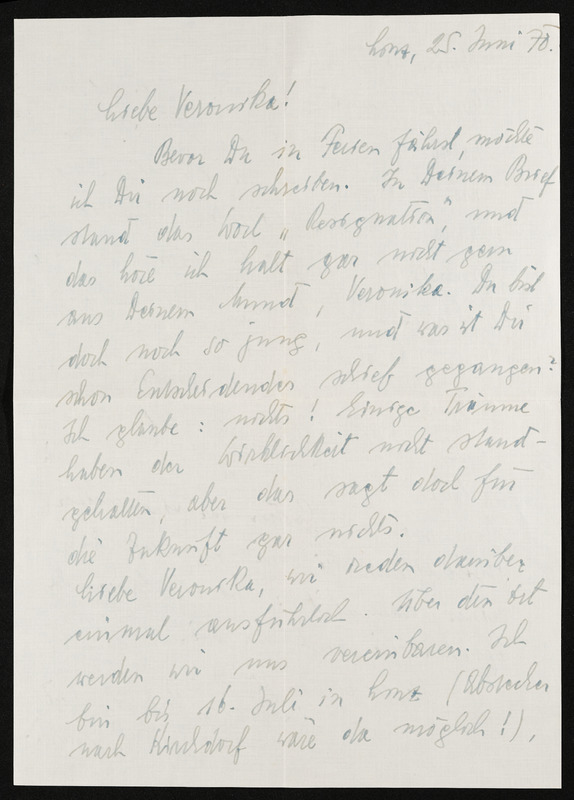 Linz, 25. Juni 70.
Liebe Veronika!
Bevor Du in Ferien fährst, möchte
ich Dir noch schreiben. In Deinem Brief
stand das Wort „Resignation", und
das höre ich halt gar nicht gern
aus Deinem Mund, Veronika. Du bist
doch noch so jung, und was ist Dir
schon Entscheidendes schief gegangen?
Ich glaube: nichts! Einige Träume
haben der Wirklichkeit nicht stand-
gehalten, aber das sagt doch für
die Zukunft gar nichts.
Liebe Veronika, wir reden darüber
einmal ausführlich. Über den Ort
werden wir uns vereinbaren. Ich
bin bis 16. Juli in Linz (Abstecher
nach Kirchdorf wäre da möglich!),